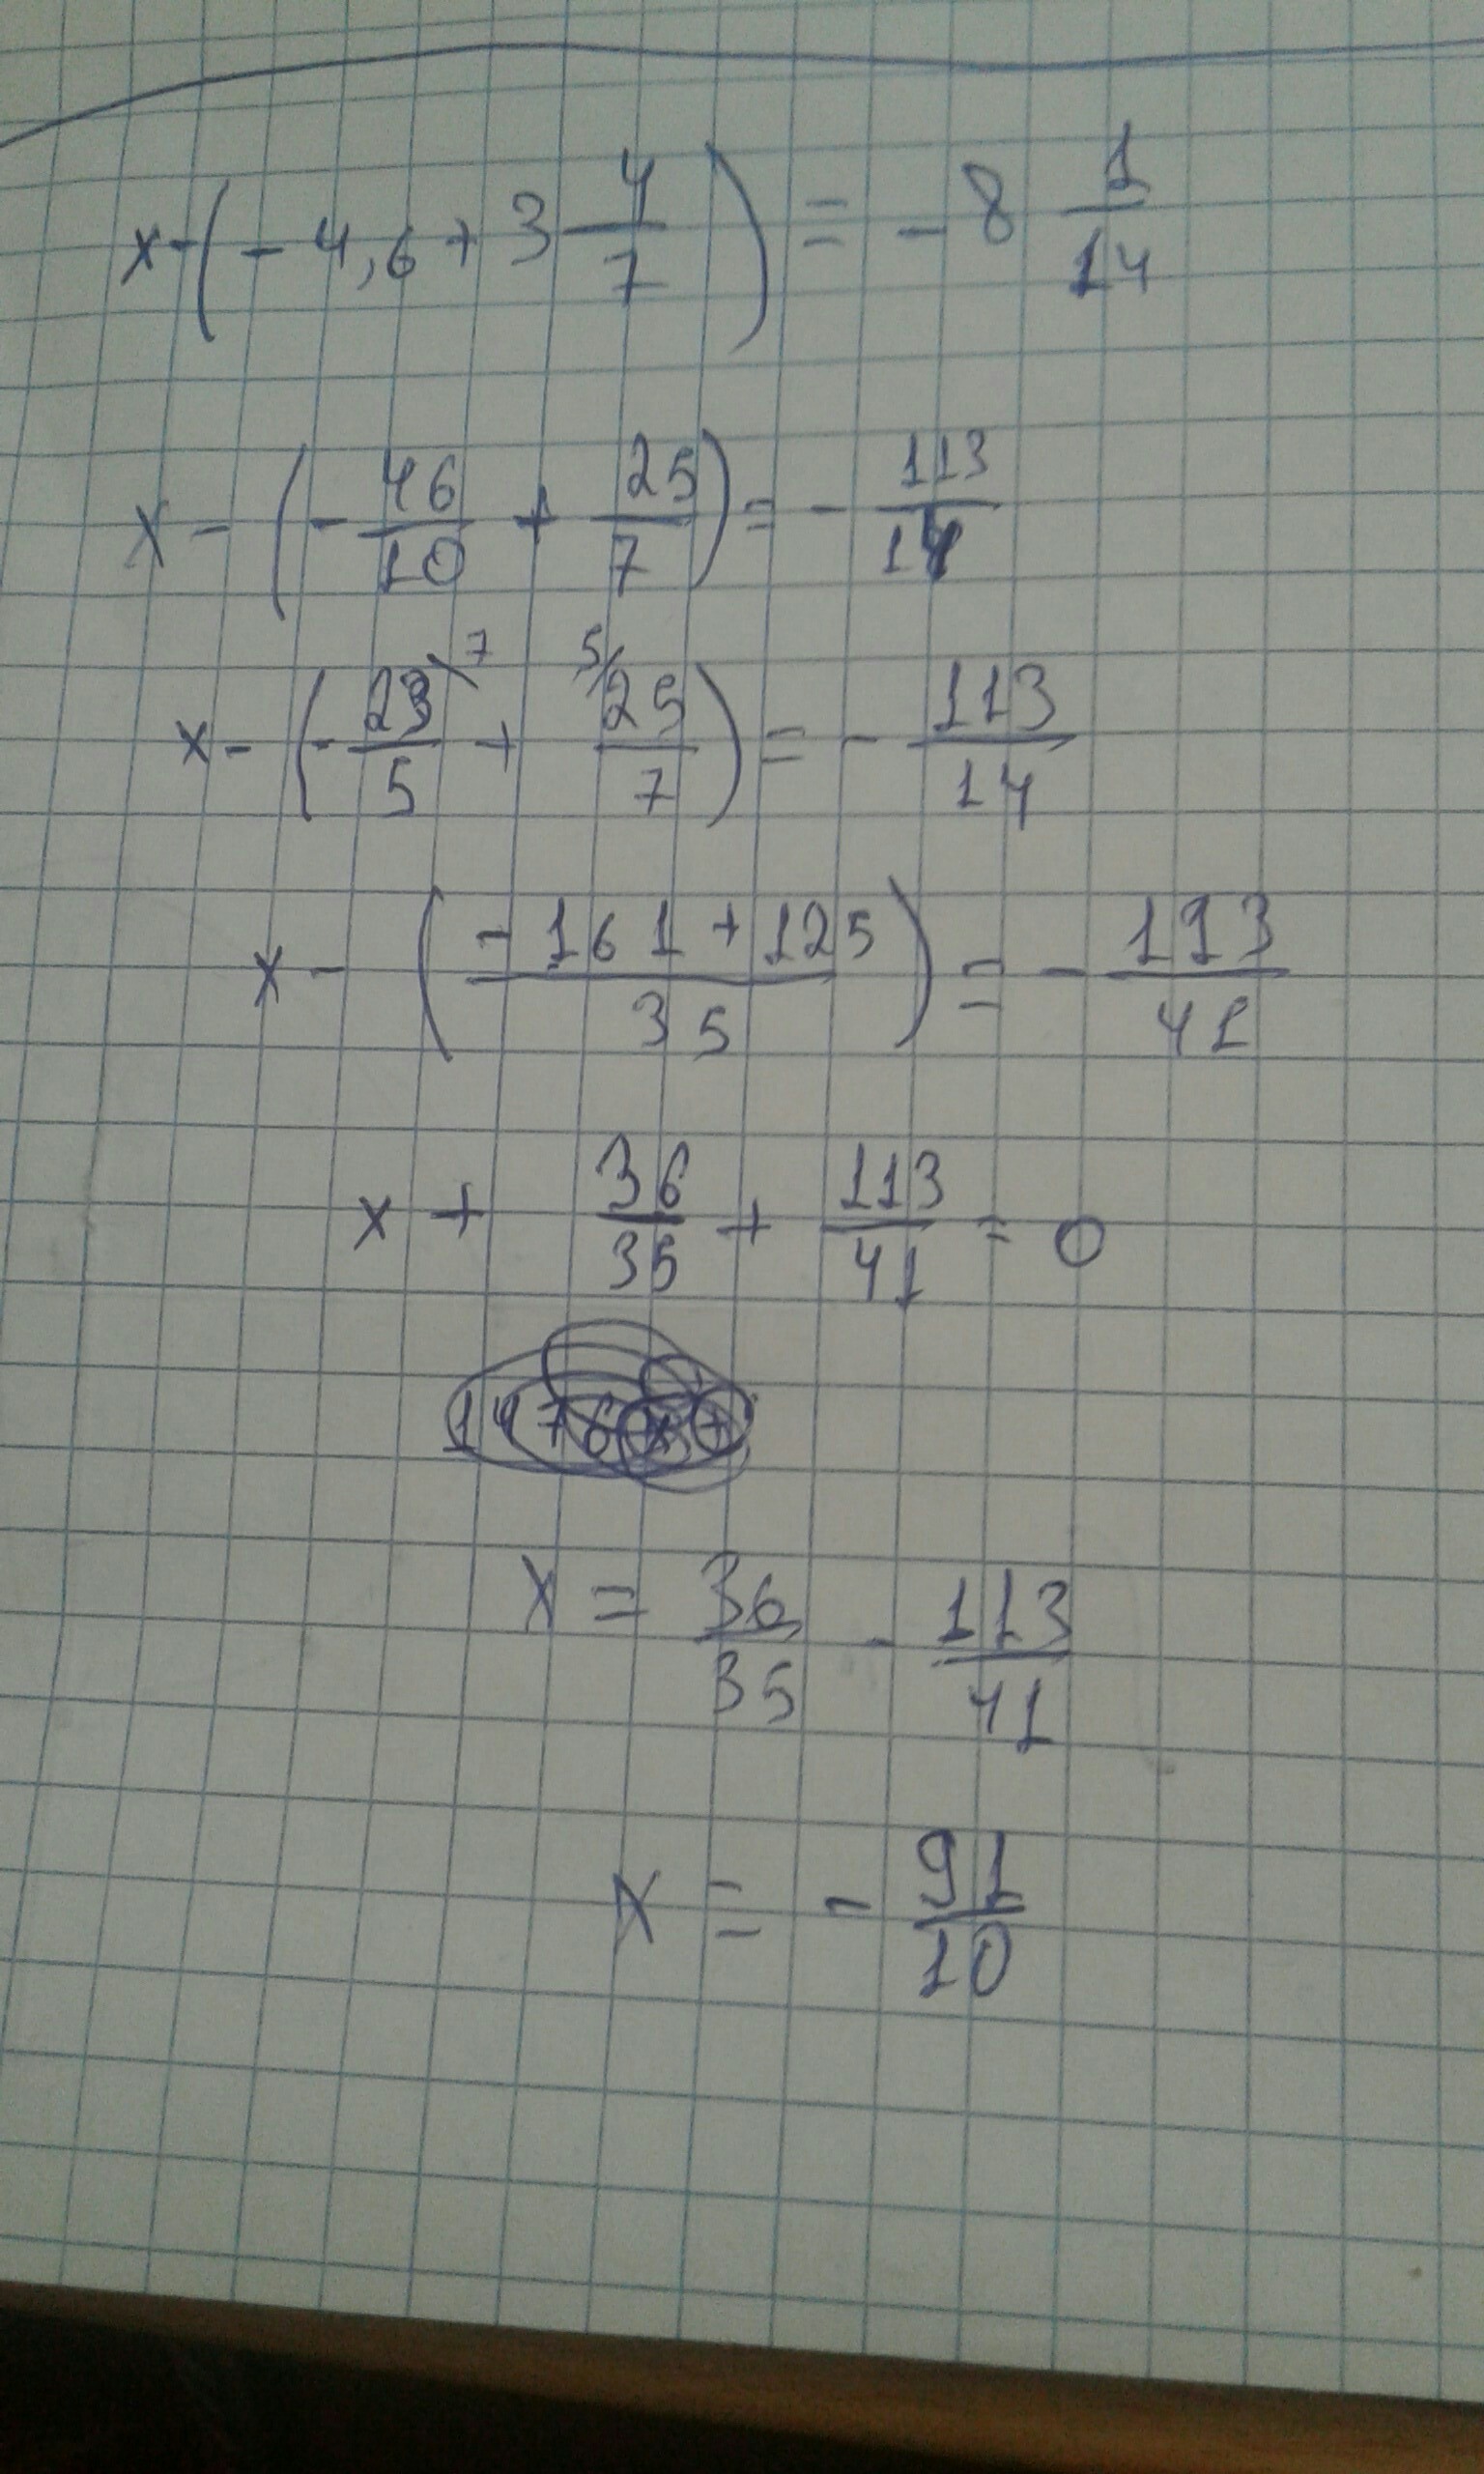 x - ( - 4,6 + 3 4/7 ) = - 8 1/14
x - ( - 46/10 + 25/7 ) = - 113/14
x - ( - 23/5 \7 + 5/ 25/7 ) = - 113/14
x - ( (- 161 + 125)/35 ) = - 113/41
x + 36/35 + 113/41 = 0
x = 36/35 - 113/41
x = - 91/10